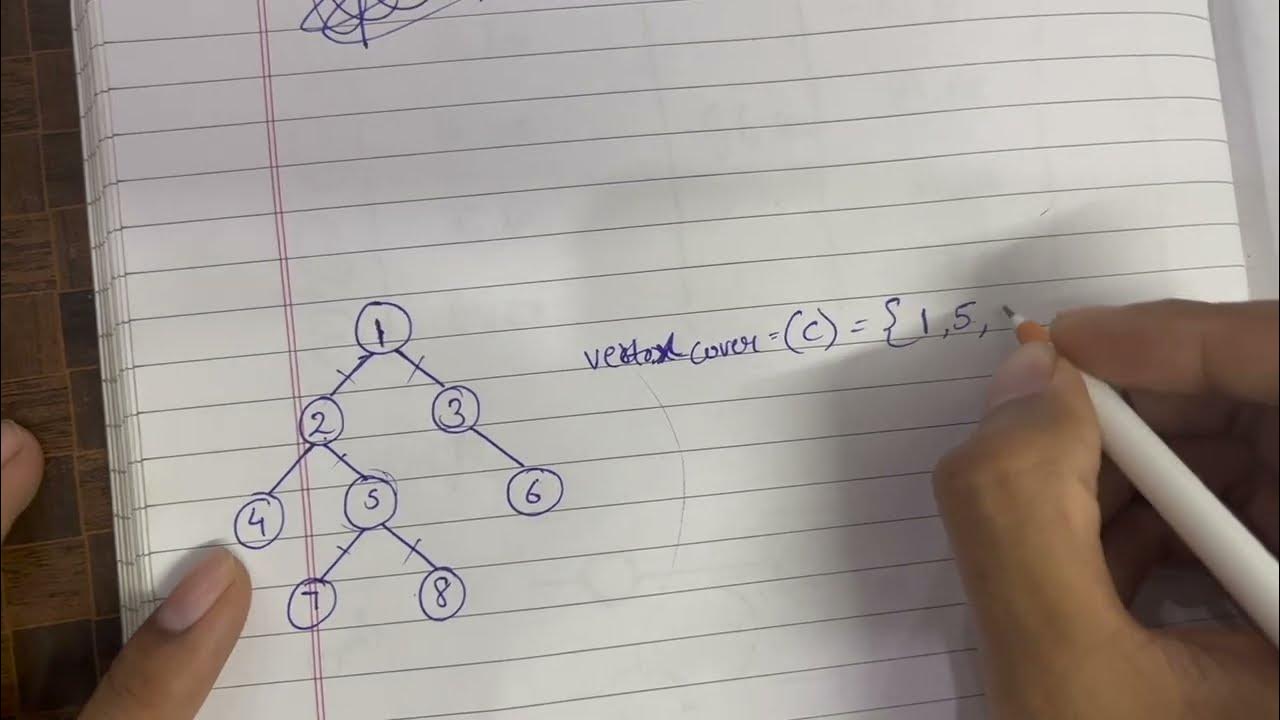 1
vertex cover = (C) = { 1, 5,
2
3
4
5
6
7
8